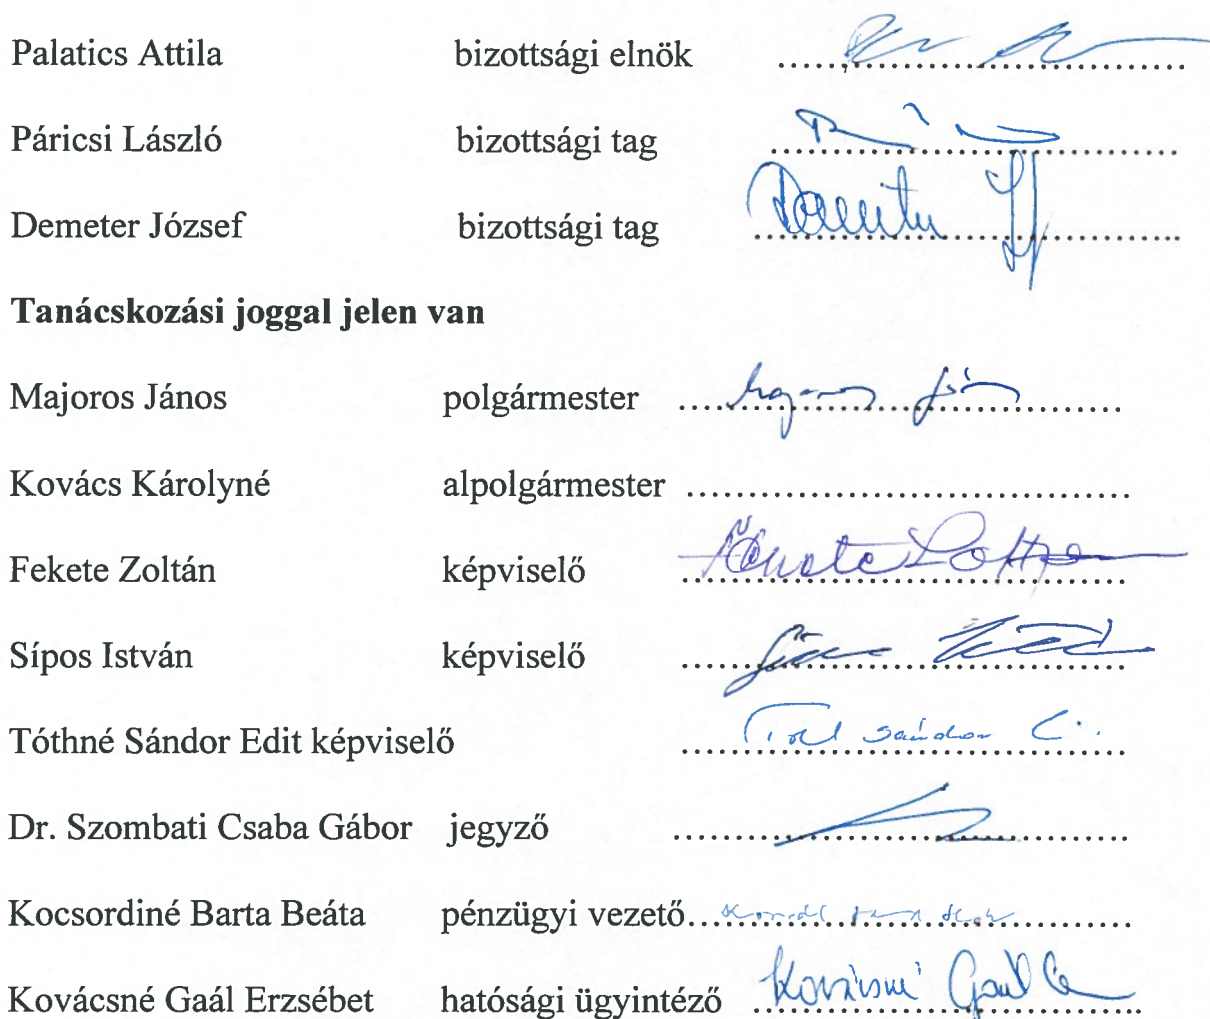 Palatics Attila bizottsági elnök
Páricsi László bizottsági tag
Demeter József bizottsági tag
Tanácskozási joggal jelen van
Majoros János polgármester
Kovács Károlyné alpolgármester
Fekete Zoltán képviselő
Sípos István képviselő
Tóthné Sándor Edit képviselő Sándor
Dr. Szombati Csaba Gábor jegyző
Kocsordiné Barta Beáta pénzügyi vezető
Kovácsné Gaál Erzsébet hatósági ügyintéző Kovácsné Gaál